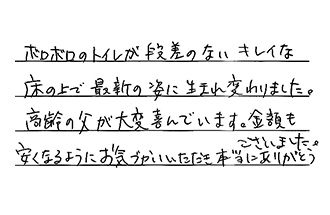 ボロボロのトイレが段差のない キレイな
床の上で最新の姿に生まれ変わりました。
高齢の父が大変喜んでいます。金額も
安くなるようにお気づかいいただき本当にありがとう
ございました。